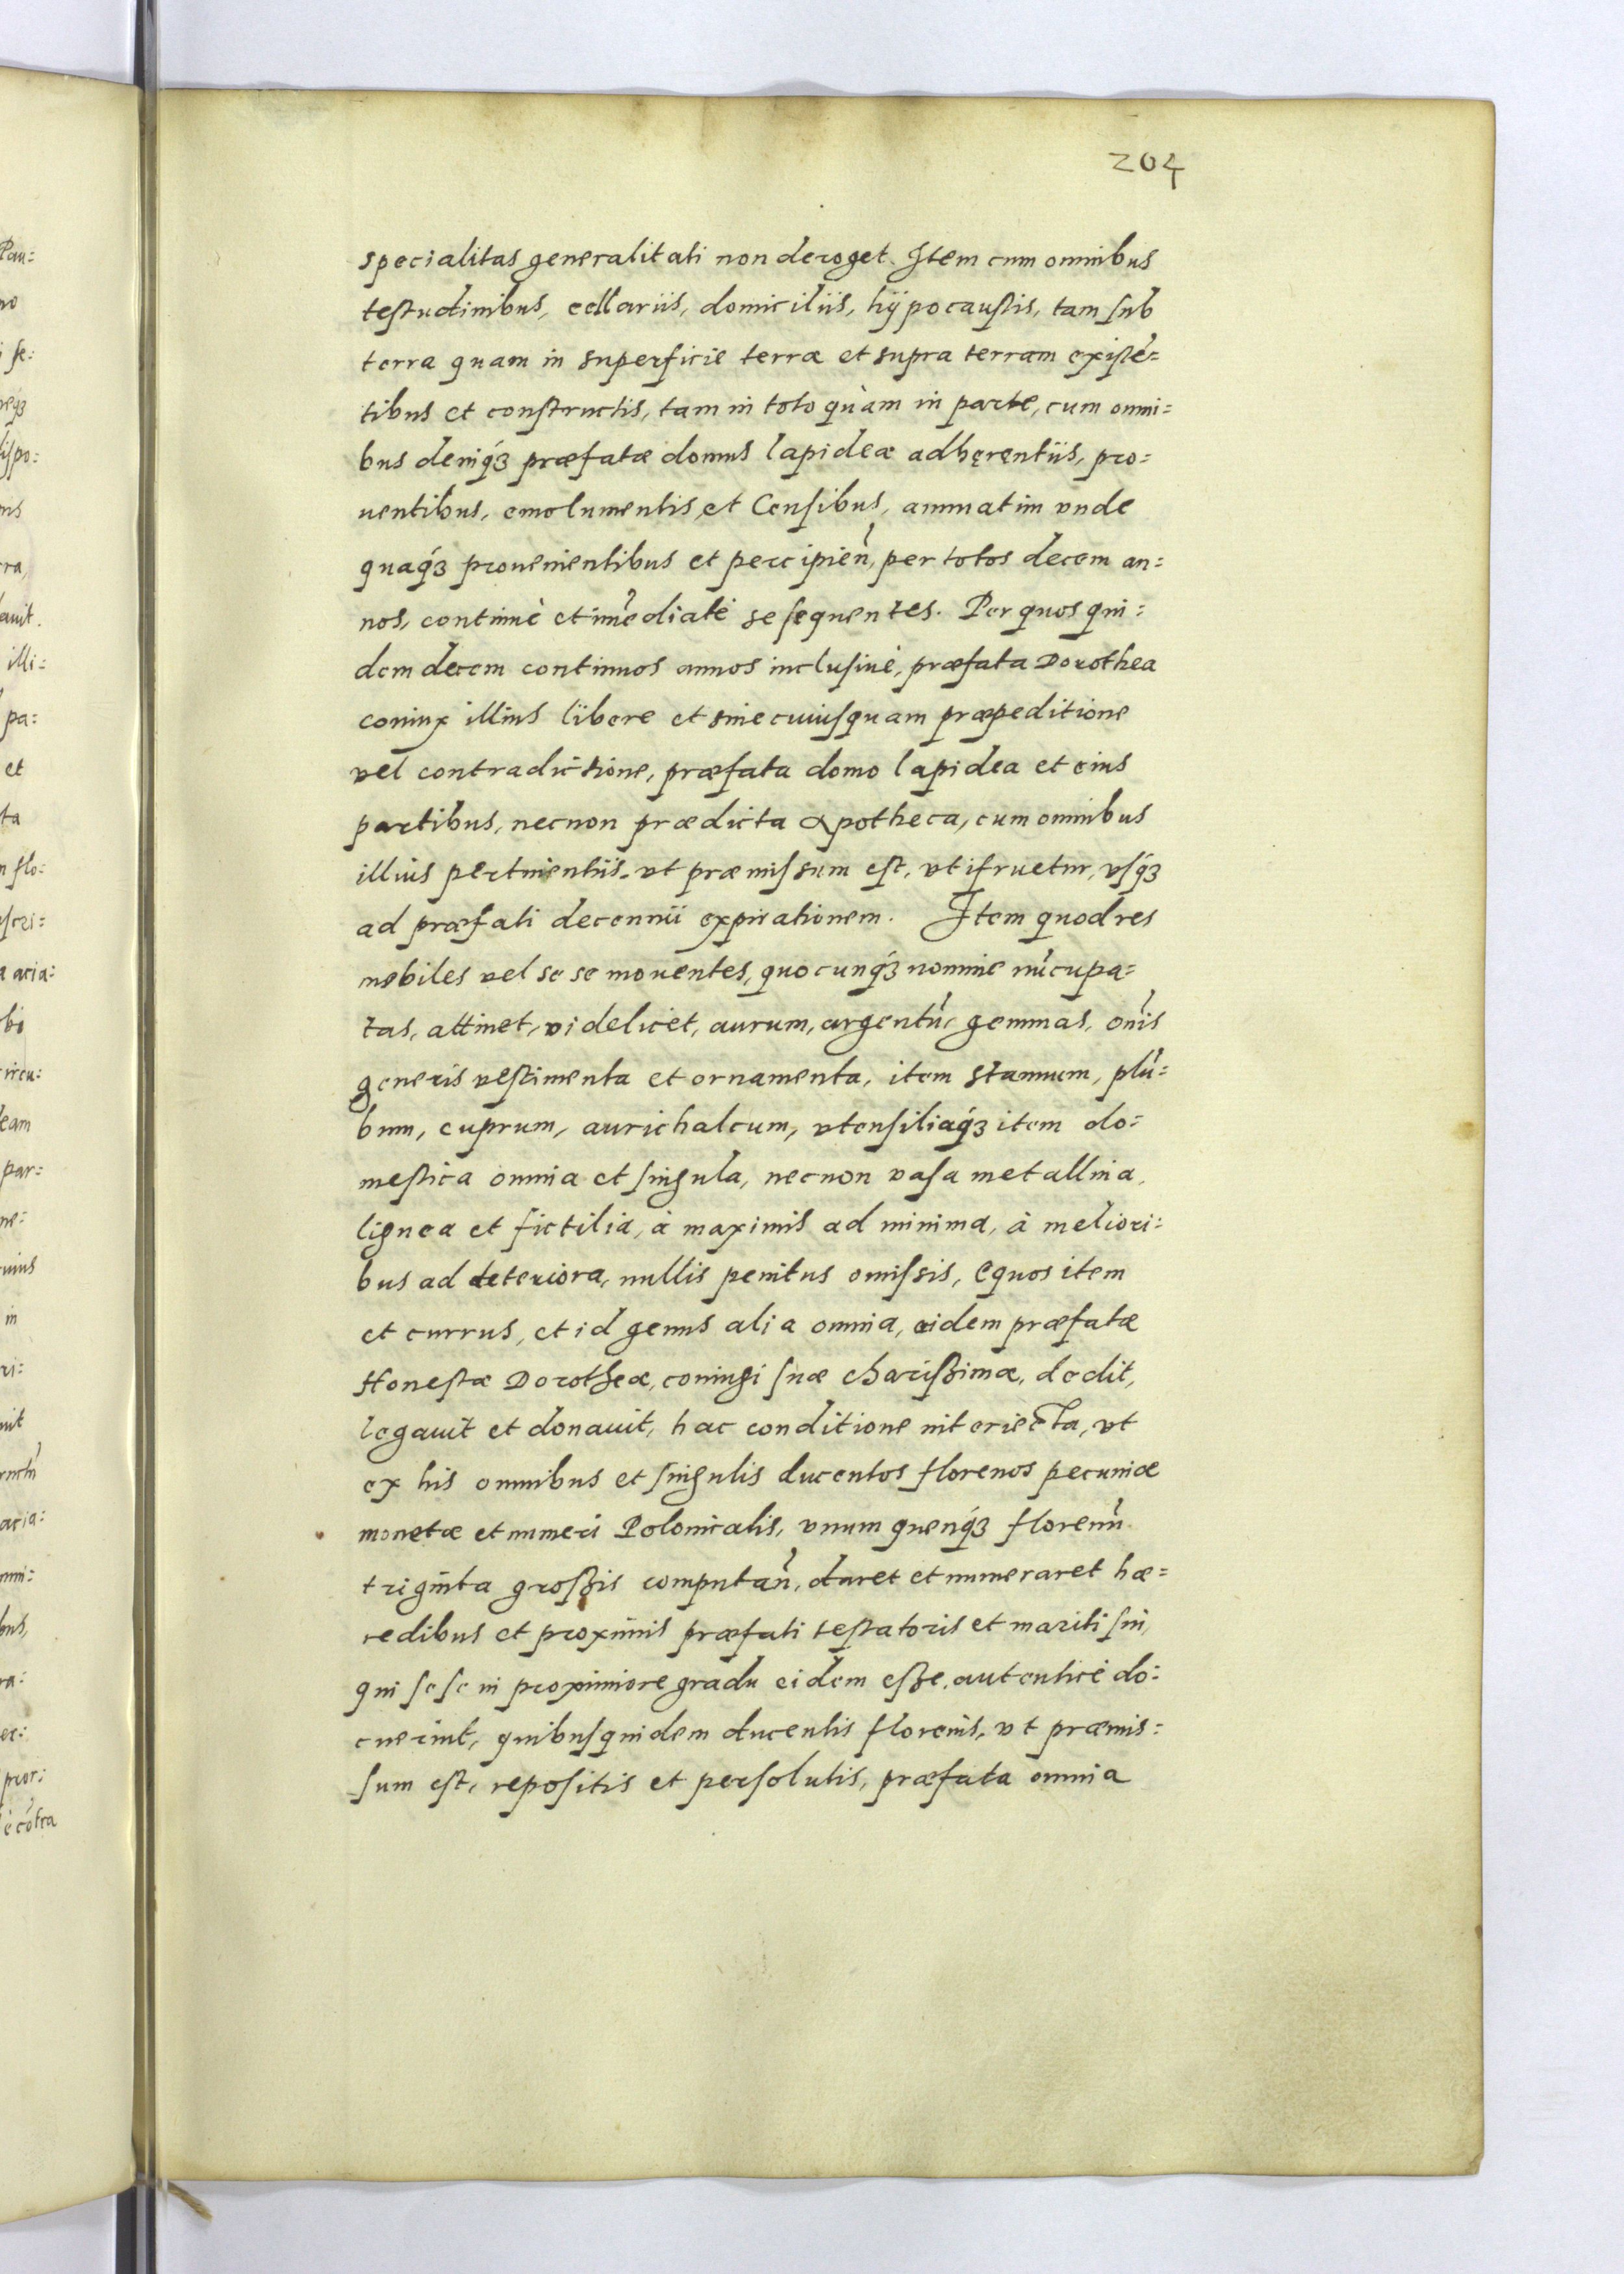 204
specialitas generalitati non deroget. Item cum omnibus
testudinibus, cellariis, domiciliis, hÿpocaustis, tam sub
terra quam in superficie terræ et supra terram existē=
tibus et constructis, tam in toto quàm in parte, cum omni=
bus deniq́ꝫ præfatæ domus lapideæ adhęrentiis, pro=
uentibus, emolumentis, et Censibus, annuatim vnde
quaq́ꝫ prouenientibus et percipień, per totos decem an=
nos, continuè et im̃ediatè se sequentes. Per quos qui=
dem decem continuos annos inclusiuè, præfata Dorothea
coniux illius libere et sine cuiusquam præpeditione
vel contradictione, præfata domo lapidea et eius
partibus, necnon prædicta Apotheca, cum omnibus
illius pertinentiis, vt præmissum est, vti fruetur, vsq́ꝫ
ad præfati decennii expirationem. Item quod res
mobiles vel se se mouentes, quocunq́ꝫ nomine nũcupa=
tas, attinet, videlicet, aurum, argentũ, gemmas, om̃is
generis vestimenta et ornamenta, item stannum, plũ=
bum, cuprum, aurichalcum, vtensiliaq́ꝫ item do=
mestica omnia et singula, necnon vasa metallina,
lignea et fictilia, à maximis ad minima, à meliori=
bus ad deteriora, nullis penitus omissis, Equos item
et currus, et id genus alia omnia, eidem præfatæ
Honestæ Dorotheæ, coniugi suæ charißimæ, dedit,
legauit et donauit, hac conditione interiecta, vt
ex his omnibus et singulis ducentos florenos pecuniæ
monetæ et numeri Polonicalis, vnum quenq́ꝫ florenũ
triginta großis computań, daret et numeraret hæ=
redibus et proximis præfati testatoris et mariti sui,
qui se se in proximiore gradu eidem eße, autenticè do=
cuerint, quibusquidem ducentis florenis, vt præmis=
sum est, repositis et persolutis, præfata omnia